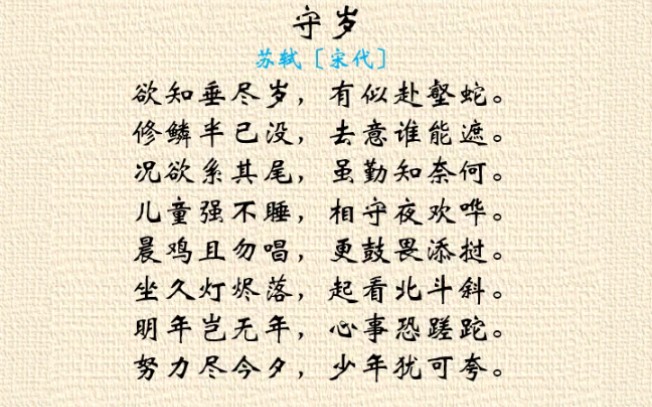 守岁
苏轼〔宋代〕
欲知垂尽岁，有似赴壑蛇。
修鳞半已没，去意谁能遮。
况欲系其尾，虽勤知奈何。
儿童强不睡，相守夜欢哗。
晨鸡且勿唱，更鼓畏添挝。
坐久灯烬落，起看北斗斜。
明年岂无年，心事恐蹉跎。
努力尽今夕，少年犹可夸。